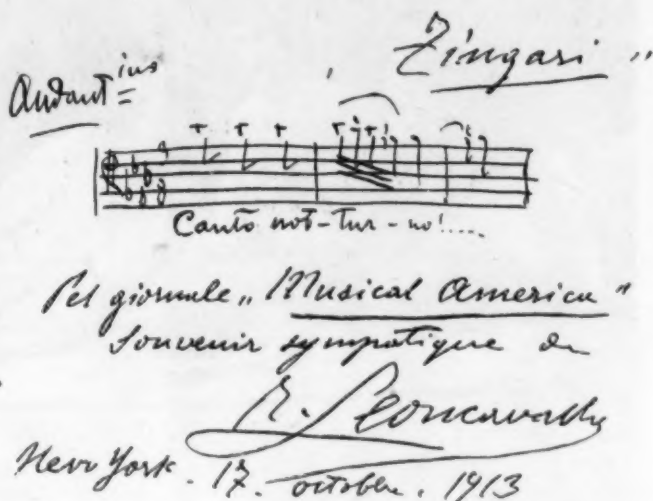 Zingari "
Andantino
Canto not-tur-no!....
Pel giornale „Musical America"
Souvenir sympatique de
R. Leoncavallo
New York. 17. october. 1913